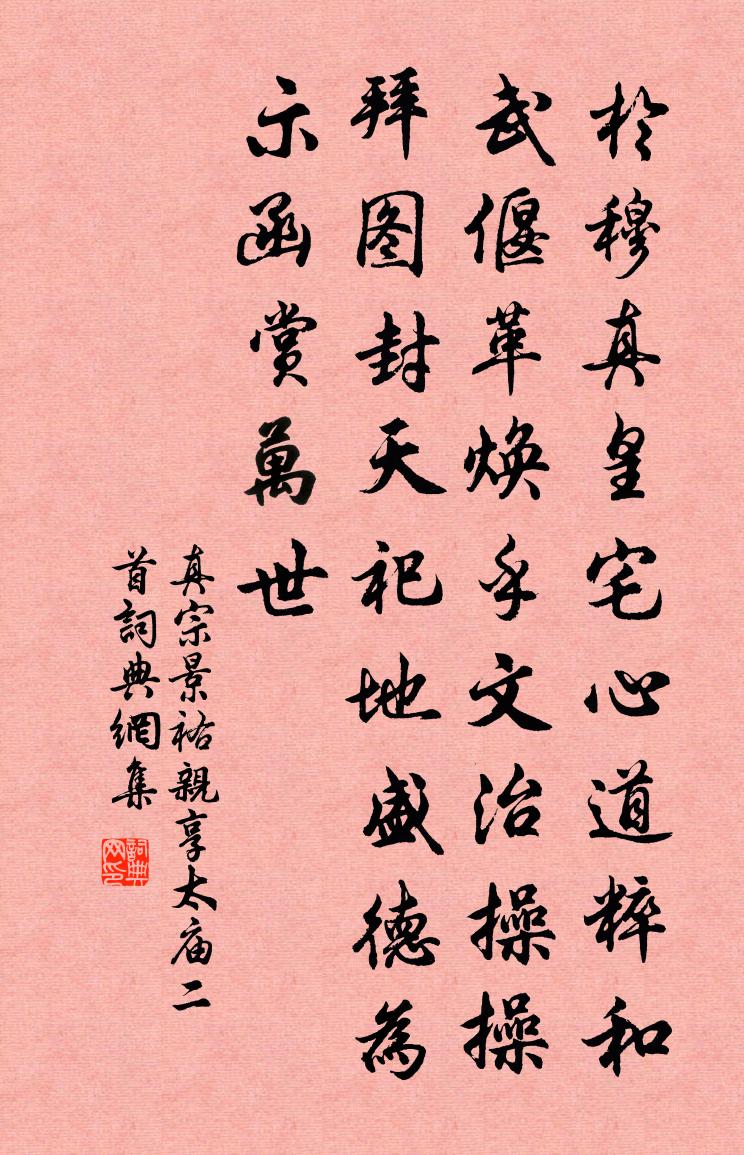 於穆真皇宅心道粹和
武偃革焕乎文治操操
拜图封天祀地盛德為
示函赏萬世
真宗景祐親享太庙二
首詞典網集
詞典
网印